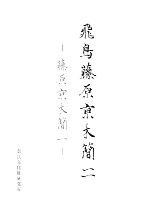 飛鳥藤原京木簡二
―藤原京木簡一―
奈良文化財研究所